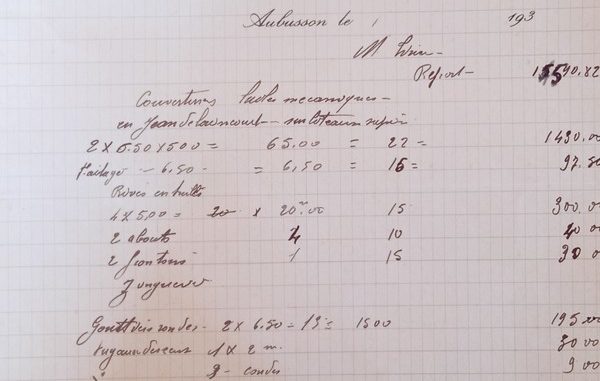 Aubusson le 193
M
Report 15590.82
Couvertures tuiles mecaniques
en Jeandelaincourt
2 X 6.50 X 500 = 65.00 = 22 = 1430.00
Faitage - 6.50 - = 6,50 = 15 = 97.50
Rives en tuiles
4 X 5,00 = 20 x 20.00 15 300.00
2 abouts 2 10 40 00
2 frontons 1 15 30 00
Gouttières rondes - 2 X 6.50 = 13 = 1500 195 00
1 X 2 m. 30 00
2 - coudes 9 00